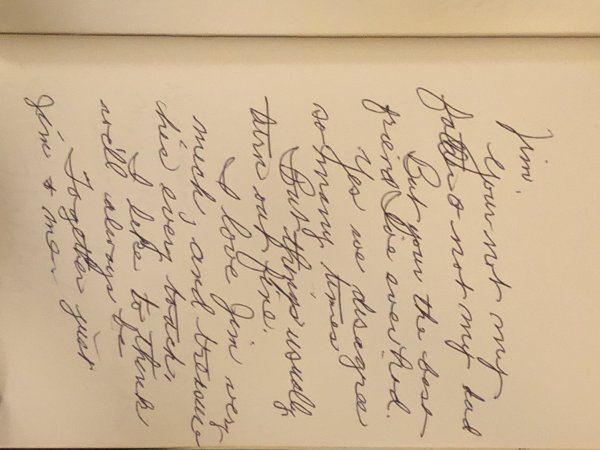 Jim.
Your not my
father & not my dad
But your the best
friend I've ever had.
Yes we disagree
so many times
But things usually
turn out fine.
I love Jim very
much, and
his every touch,
I like to think
we'll always be
Together just
Jim & me